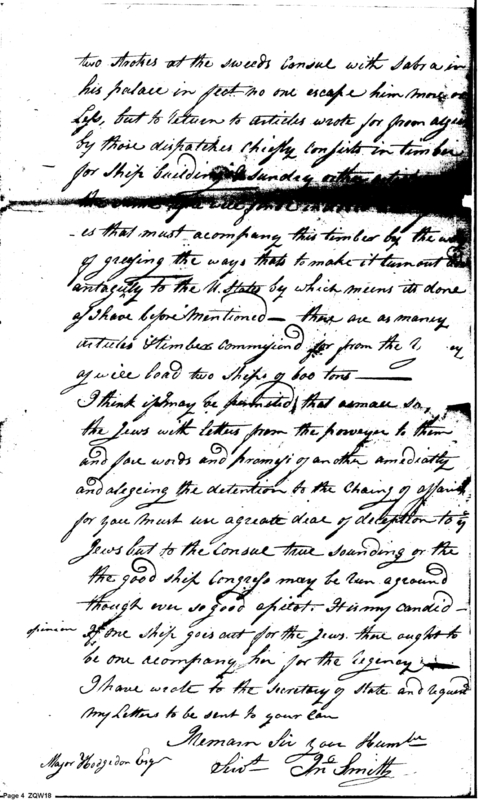 two strokes at the sweeds Consul with Sabra in
his palace in feet no one escape him more or
Less, but to return to articles wrote for from algie
by those dispatches Chiefly Consists in timber
for Ship building & sunday other
the
-es that must acompany this timber by the way
of greesing the ways that to make it turn out
to the U. States by which meins its done
as I have before mentioned — thare are as maney
articles & timber for from the
as will load two Ships of 600 tons —
I think if I may be permited, that a small
the Jews with letters from the to them
and fare words and promises of another amediatly
and alegeing the detention to the Chaing of affairs
for you must use a greate deal of deception to ye
Jews but to the Consul true sounding or the
the good ship Congress may be run aground
though ever so good a pilot. It is my candid —
opinion If one ship goes out for the Jews. thare ought to
be one acompany her for the Regency —
I have wrote to the Secretary of State and
my Letters to be sent to your
Remain Sir your Humble
Servt. Jno. Smith
Major Hodgedon Esqr
Page 4 ZQW18